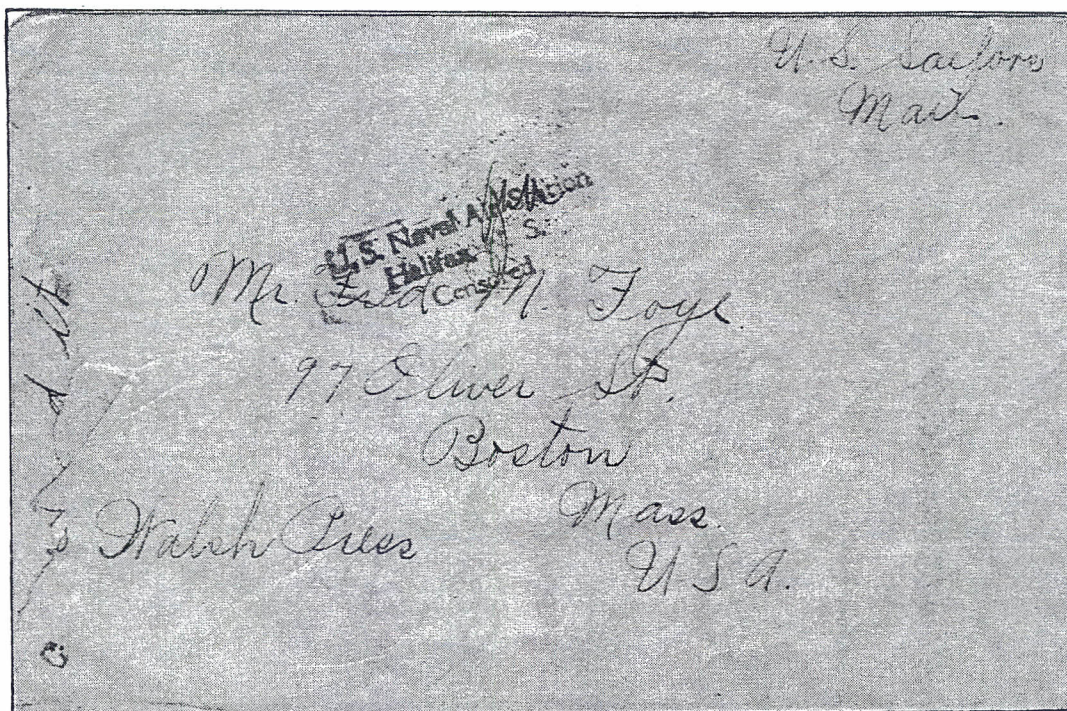 U. S. Sailors
Mail.
U.S. Naval Air Station
Halifax N. S.
Censored
Mr. Fred M. Foye
97 Oliver St.
Boston
Mass.
U S A.
Walsh Press